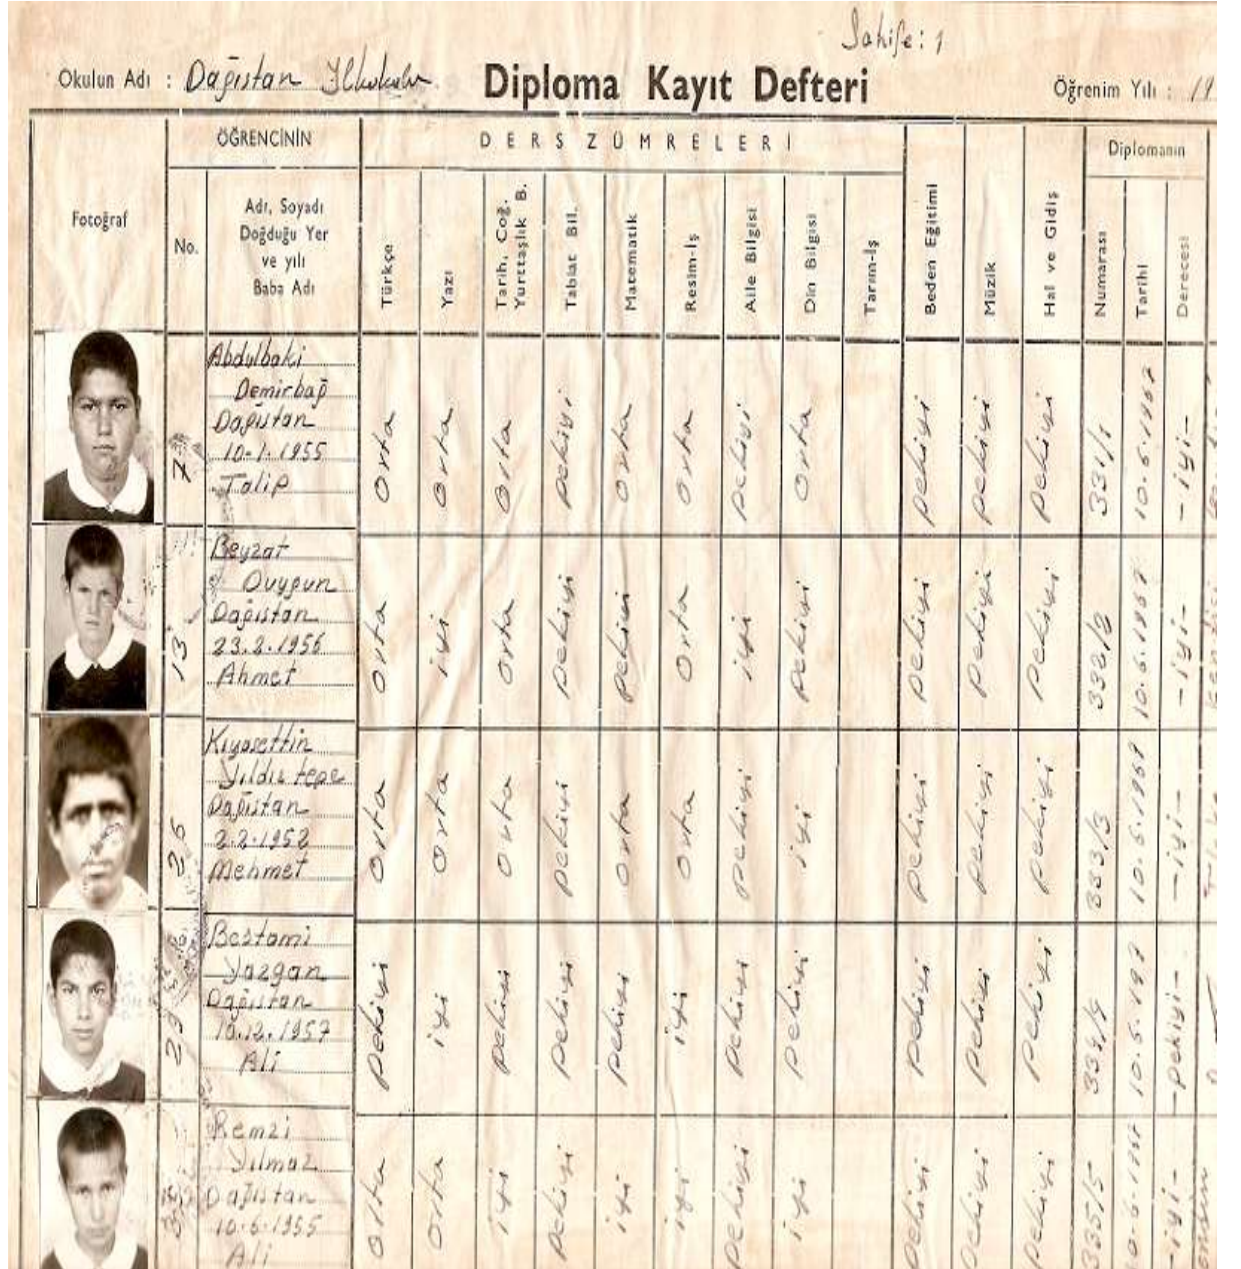 Sahife: 1
Okulun Adı : Dağıstan İlkokulu
Diploma Kayıt Defteri
Öğrenim Yılı : 19
ÖĞRENCİNİN
DERS ZÜMRELERİ
Diplomanın
Fotoğraf
No.
Adı, Soyadı
Doğduğu Yer
ve yılı
Baba Adı
Türkçe
Yazı
Tarih, Coğ.
Yurttaşlık B.
Tabiat Bil.
Matematik
Resim-İş
Aile Bilgisi
Din Bilgisi
Tarım-İş
Beden Eğitimi
Müzik
Hal ve Gidiş
Numarası
Tarihi
Derecesi
7
Abdulbaki
Demirbağ
Dağıstan
10-1-1955
Talip
Orta
Orta
Orta
pekiyi
Orta
Orta
pekiyi
Orta
pekiyi
pekiyi
pekiyi
331/1
10.6.1967
-iyi-
13
Beyzat
Duygun
Dağıstan
23.2.1956
Ahmet
Orta
iyi
Orta
pekiyi
pekiyi
Orta
iyi
pekiyi
pekiyi
pekiyi
pekiyi
332/2
10.6.1967
-iyi-
26
Kıyasettin
Yıldıztepe
Dağıstan
2.2.1952
Mehmet
Orta
Orta
Orta
pekiyi
Orta
Orta
pekiyi
iyi
pekiyi
pekiyi
pekiyi
333/3
10.6.1967
-iyi-
29
Bestami
Yazgan
Dağıstan
10.12.1957
Ali
pekiyi
iyi
pekiyi
pekiyi
pekiyi
iyi
pekiyi
pekiyi
pekiyi
pekiyi
pekiyi
334/4
10.6.197
-pekiyi-
Remzi
Yılmaz
Dağıstan
10.6.1955
Ali
Orta
Orta
iyi
pekiyi
iyi
iyi
pekiyi
iyi
pekiyi
pekiyi
pekiyi
335/5
0-6-1967
-iyi-